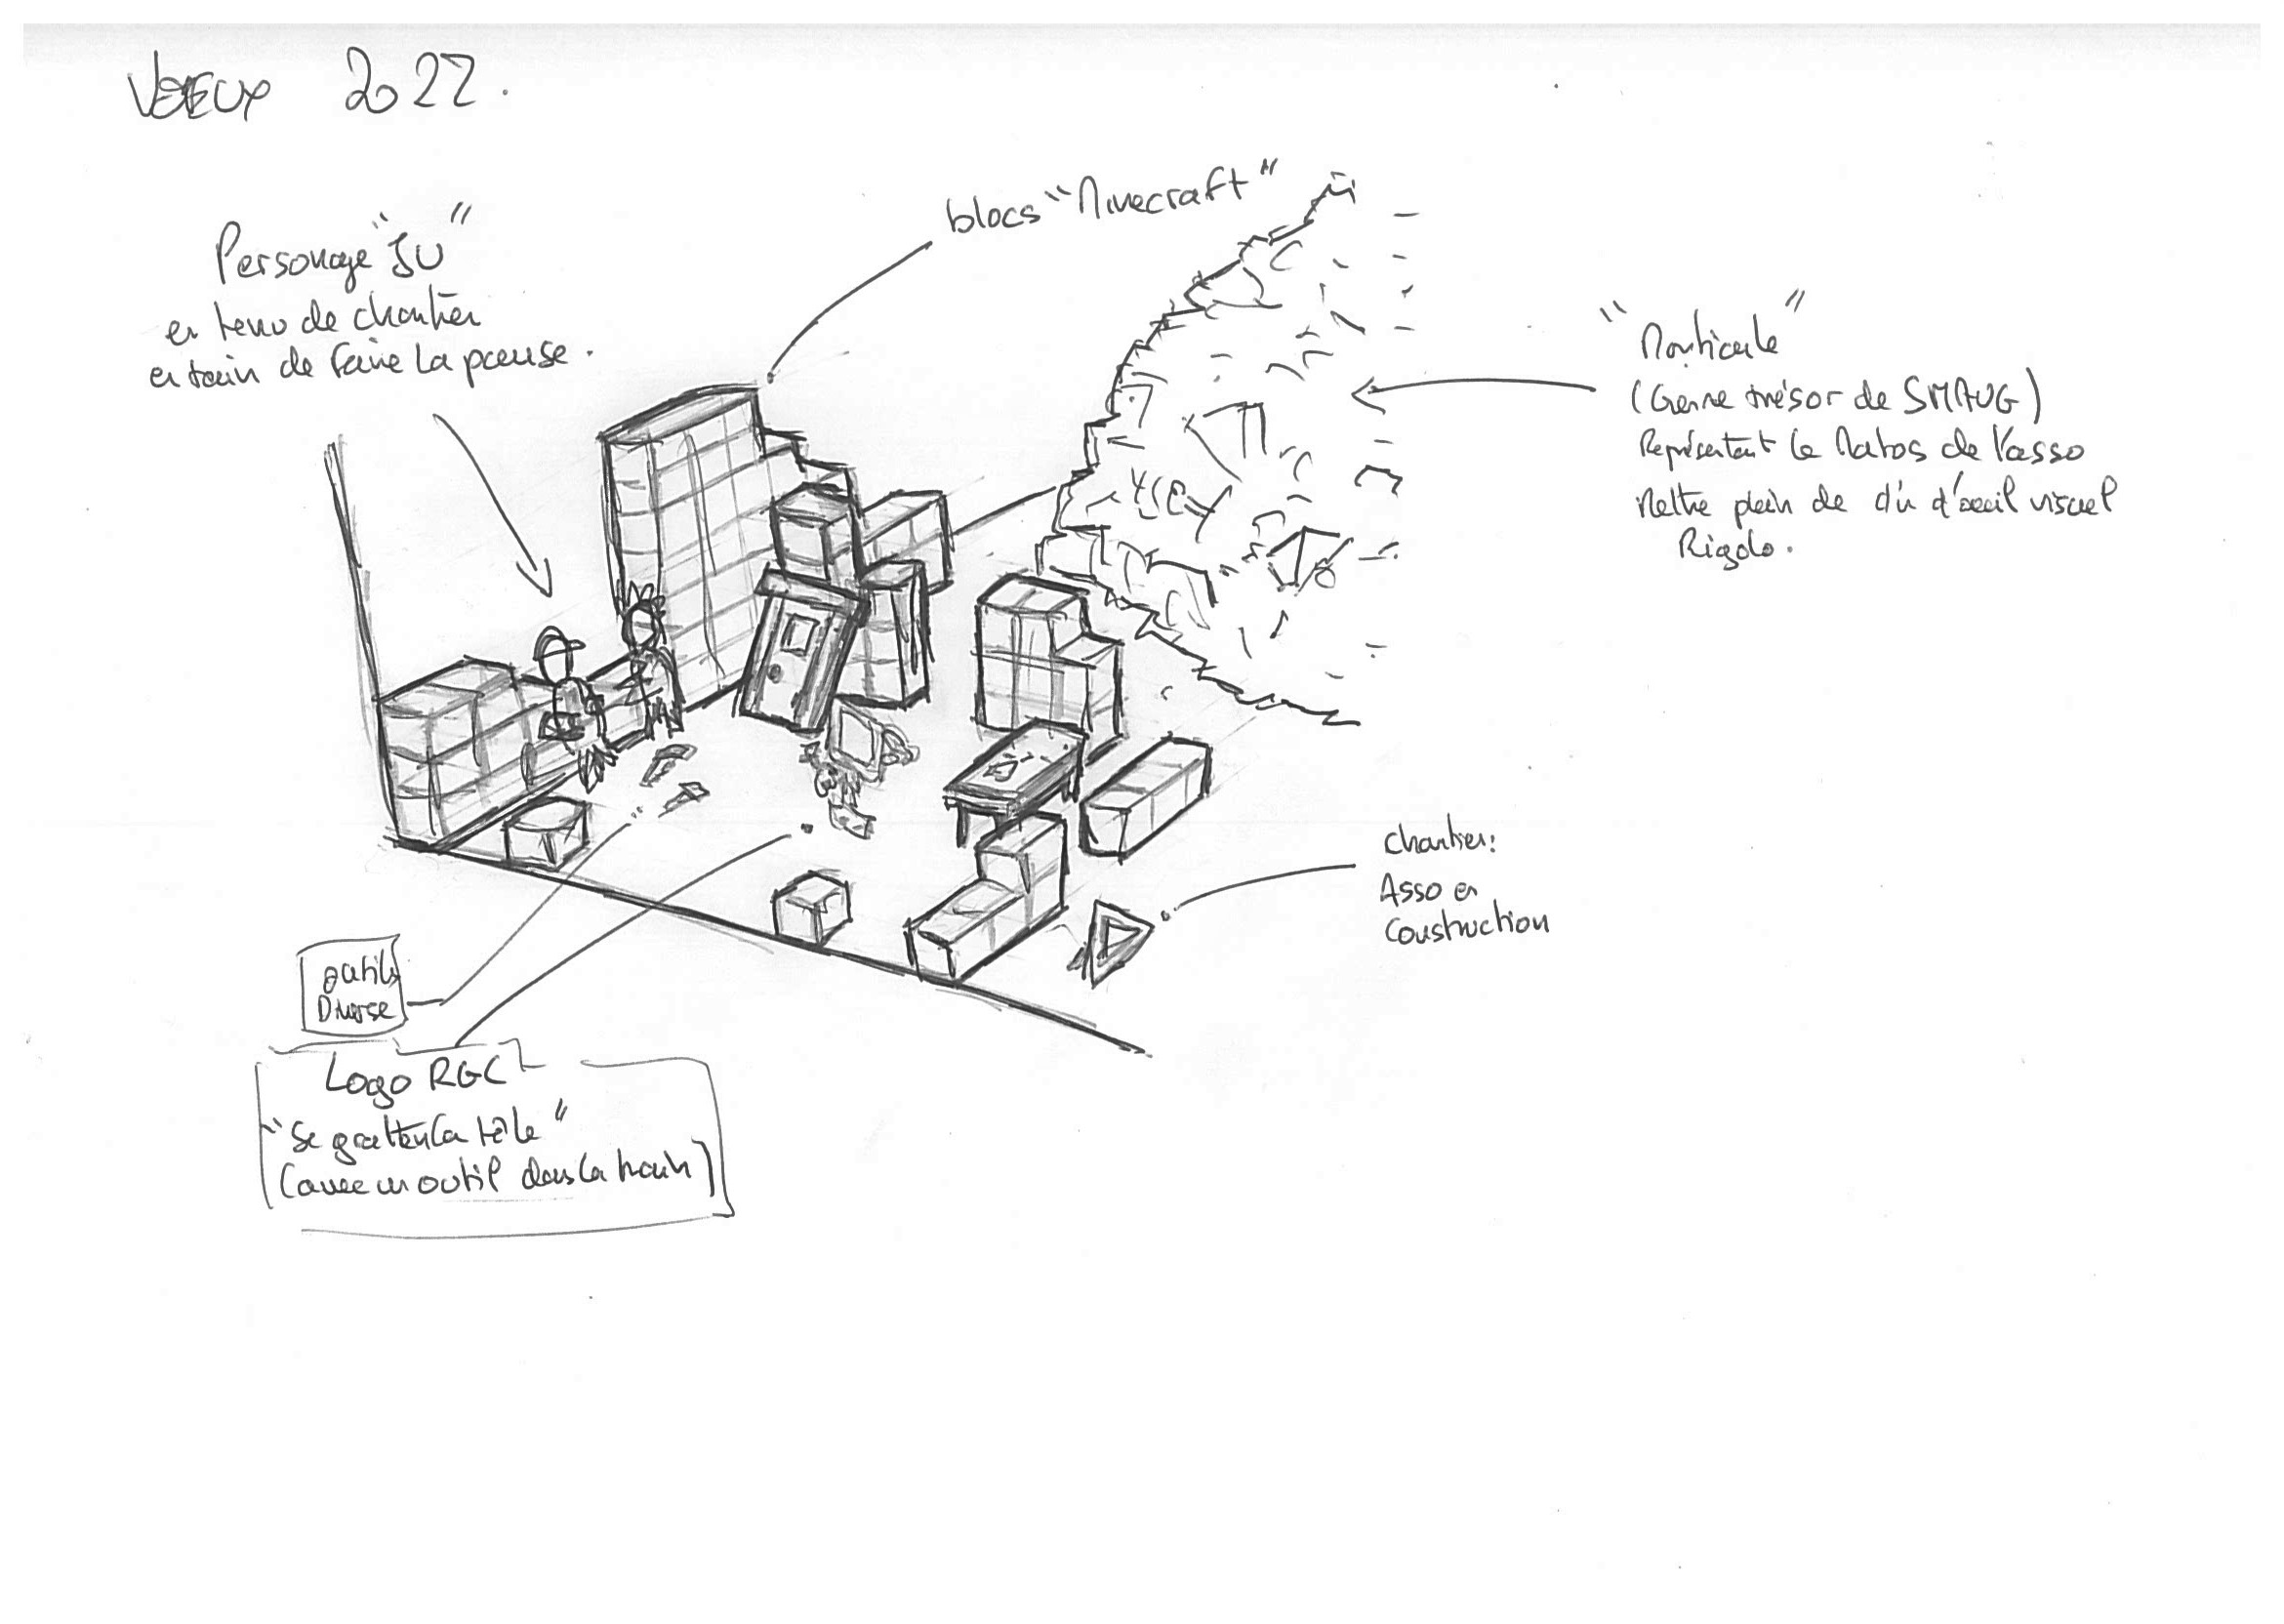 VOEUX 2022.
Personage "JU"
en tenu de chantier
en train de faire la pause.
blocs "Minecraft"
"Monticule"
(Genre trésor de SMAUG)
Représentant le Matos de l'asso
Mettre plein de d'oeil visuel
Rigolo.
Chantier:
Asso en
Construction
outils
Diverse
Logo RGC
"Se gratten la tête"
(avec un outil dans la main)